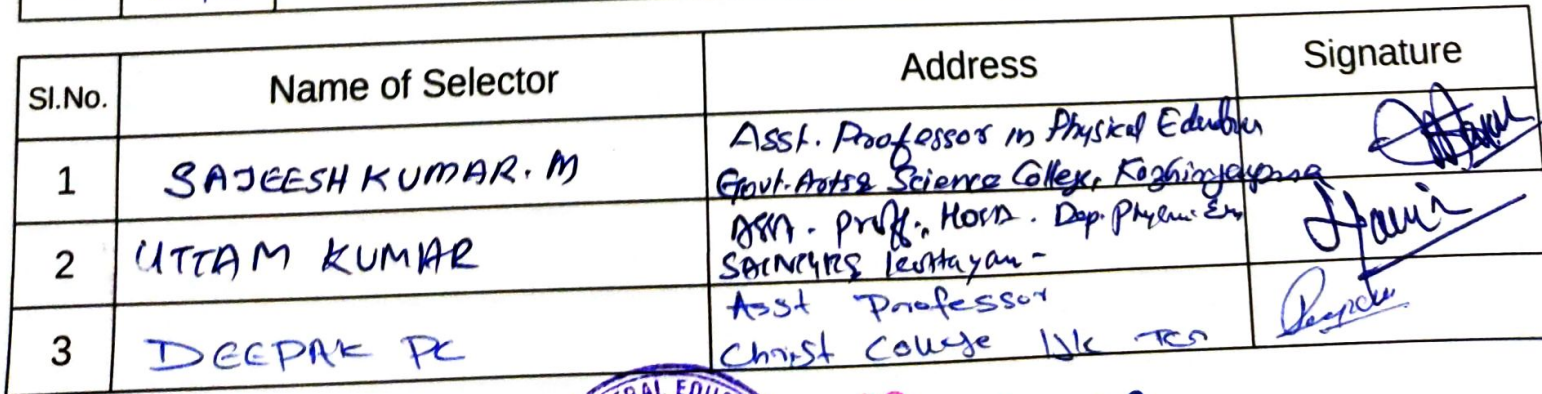 Sl.No. Name of Selector Address Signature
1 SAJEESH KUMAR. M Asst. Professor in Physical Education
Govt. Arts & Science College, Kozhinjampara
2 UTTAM KUMAR Prof., Dep.
Kottayam -
3 DEEPAK PC Asst Professor
Christ College IJK TCR
RAL EDU